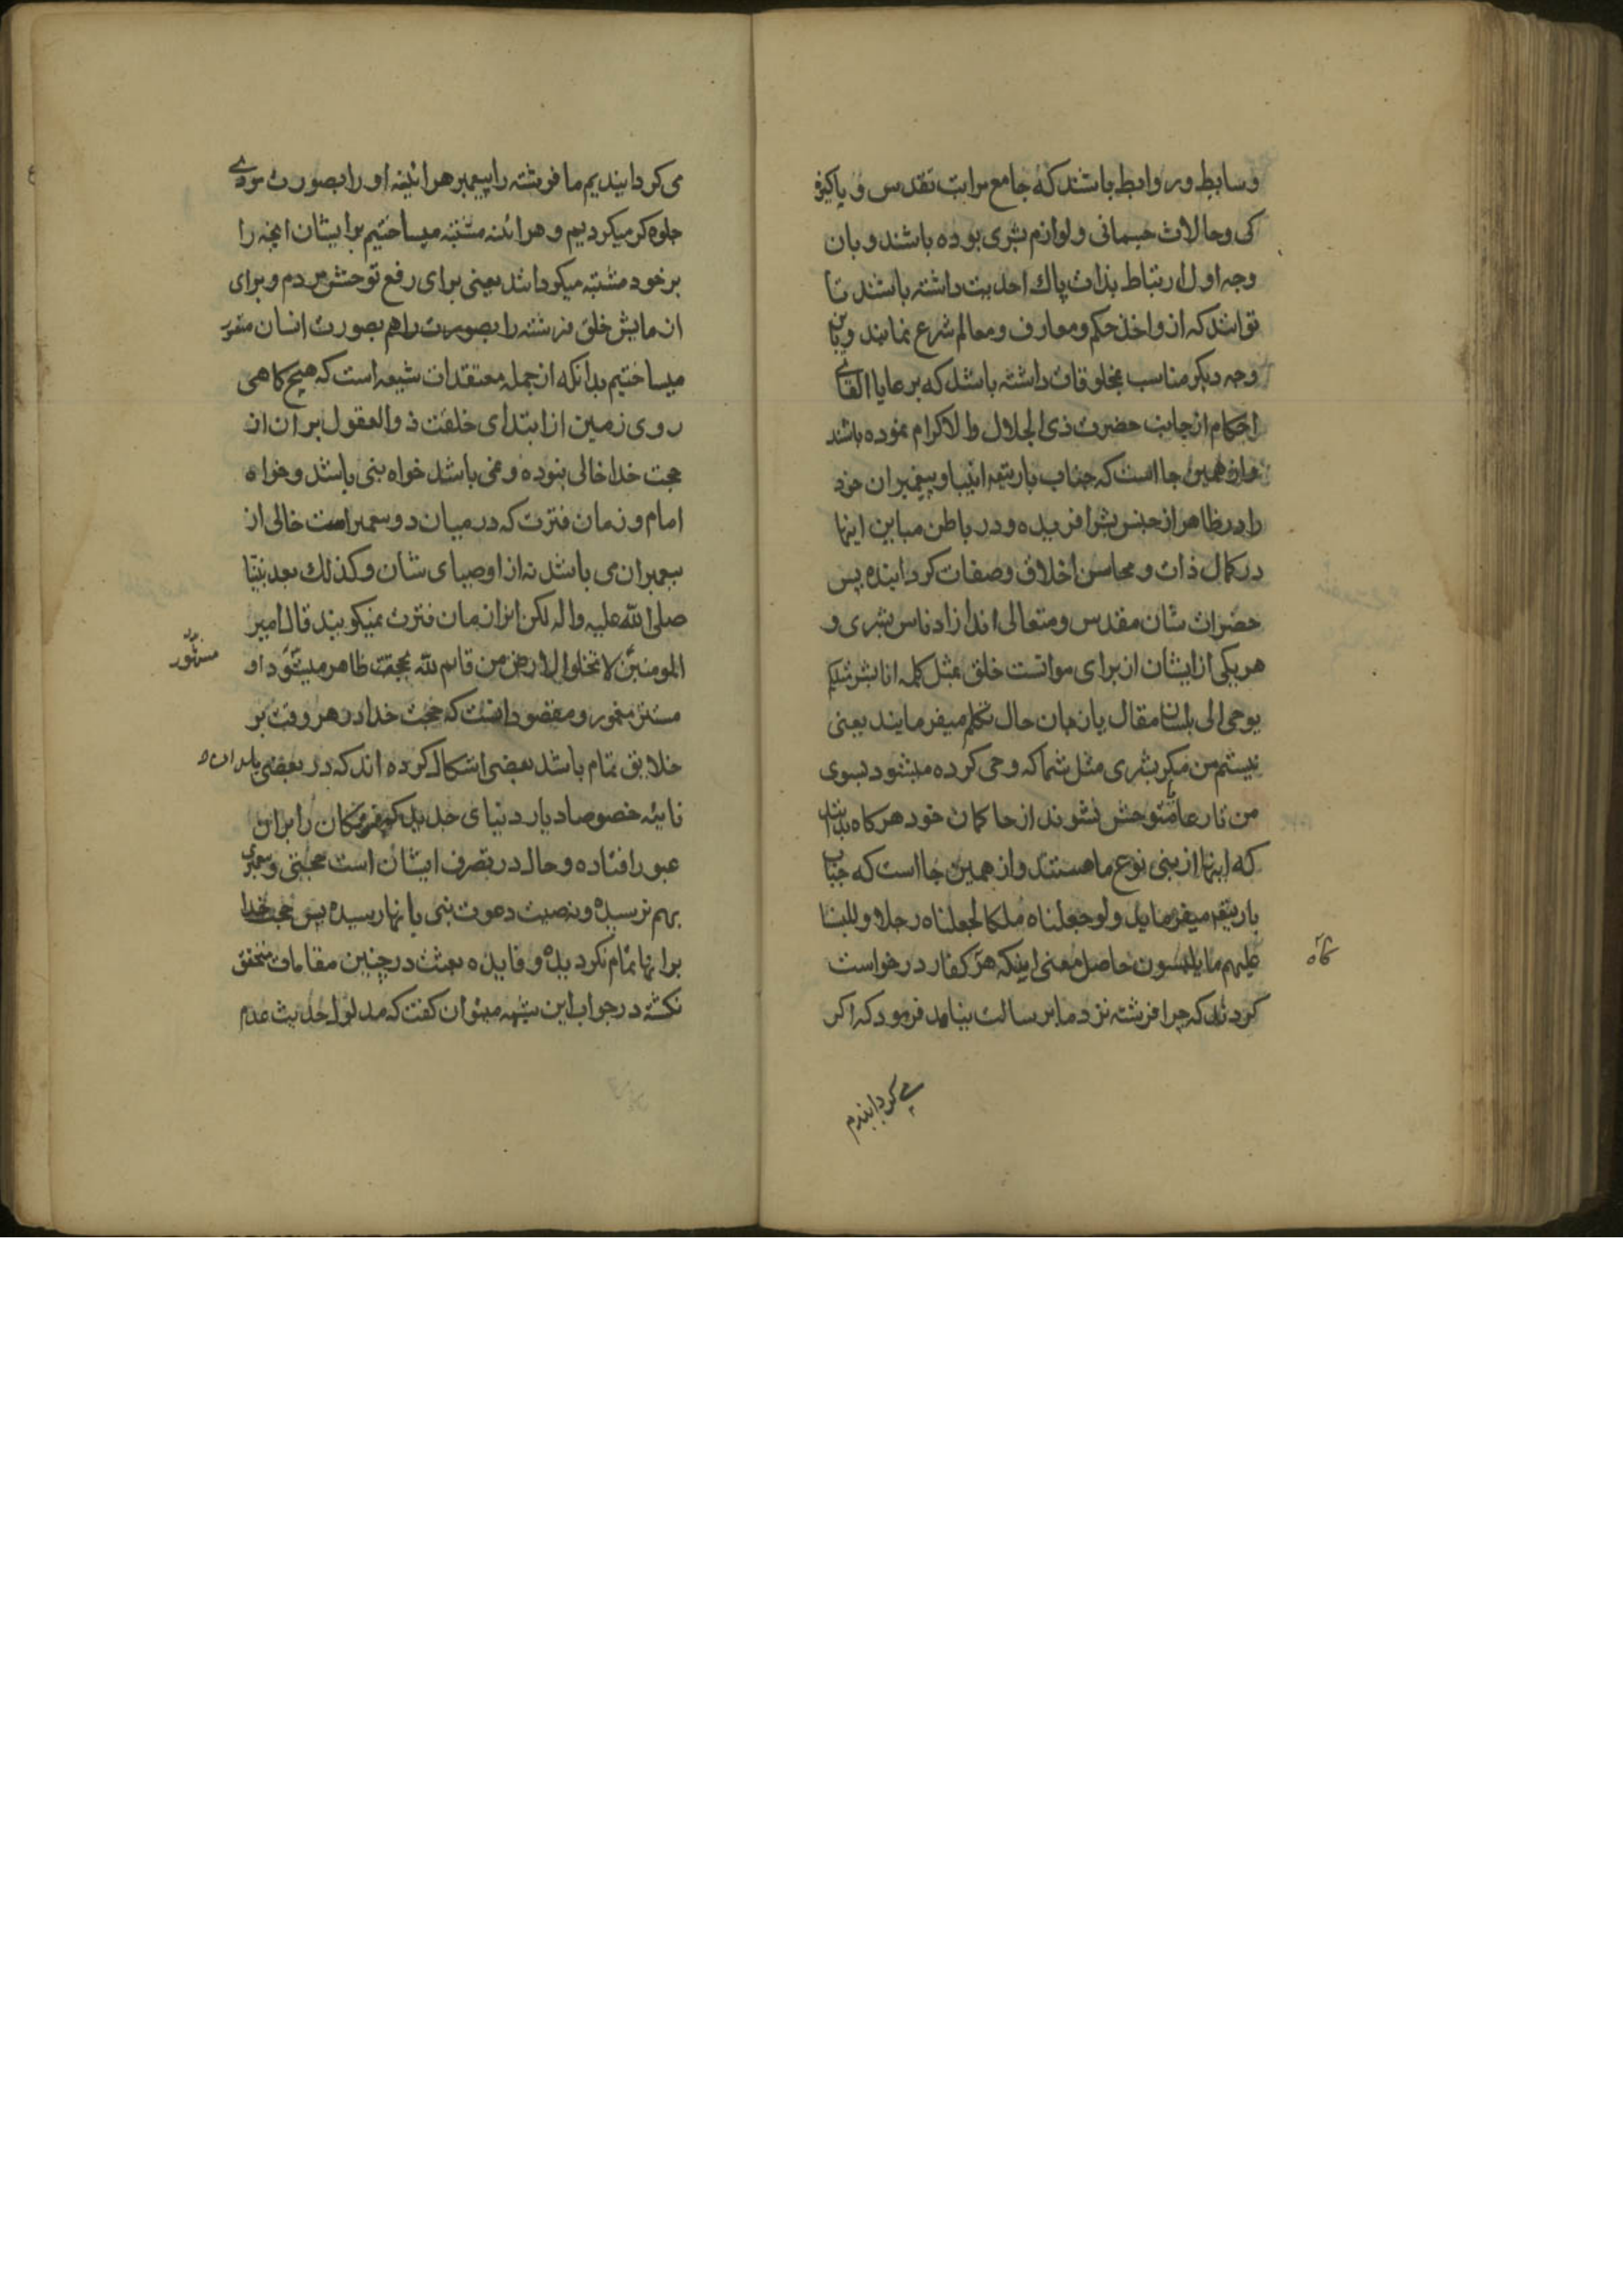 وسابط و روابط باشند که جامع مراتب تقدس و پاکیزه
کی و حالات جسمانی و لوازم بشری بوده باشند و بان
وجه اول ارتباط بذات پاك احدیت داشته باشند تا
توانند که از و اخذ حکم و معارف و معالم شرع نمایند و باین
وجه دیکر مناسب بمخلوقات داشته باشد که بر عایا القای
احکام از جانب حضرت ذی الجلال و الاکرام نموده باشند
و از همین جا است که جناب باریتعم انبیا و پیغمبران خود
را در ظاهر از جنس بشر افریده و در باطن مباین اینها
در کمال ذات و محاسن اخلاق و صفات کردانیده پس
حضرات شان مقدس و متعالی اند از ادناس بشری و
هریکی از ایشان از برای موانست خلق بمثل کلمه انا بشر مثلکم
یوحی الی بلسان مقال یا زبان حال تکلم میفرمایند یعنی
نیستم من مکر بشری مثل شما که وحی کرده میشود بسوی
من تا رعا متوحش نشوند از حاکمان خود هرکاه بدانند
که اینها از بنی نوع ما هستند و از همین جا است که جناب
باریتعم میفرماید و لو جعلناه ملکا لجعلناه رجلا و للبسنا
علیهم ما یلبسون حاصل معنی اینکه هر کفار درخواست
کردند که چرا فرشته نزد ما بر سالت بنیامد فرمود که اکر
کاه
می کردانیدم
می کردانیدیم ما فرشته را پیغمبر هراینه او را بصورت مردی
جلوه کر میکردیم و هرائنه مشتبه میساختیم بر ایشان انچه را
بر خود مشتبه میکردانند یعنی برای رفع توحش مردم و برای
ازمایش خلق فرشته را بصورت راهم بصورت انسان مقرر
میساختیم بدانکه از جمله معتقدات شیعه است که هیچ کاهی
روی زمین از ابتدای خلقت ذو العقول بر ان از
حجت خدا خالی نبوده و نمی باشد خواه نبی باشد و خواه
امام و زمان فترت که در میان دو پیغمبر است خالی از
پیغمبران می باشد نه از اوصیای شان و کذلك بعد نبینا
صلی الله علیه واله لکن انرا زمان فترت نمیکویند قال امیر
المومنین لا تخلوا الارض من قائم لله بحجة ظاهر مشهور او
مشهور
مستتر مغمور و مقصود انست که حجت خدا در هر وقت بر
خلایق تمام باشد بعضی اشکال کرده اند که در بعضی بلدان
نائیه خصوصا دیار دنیای جدید که فرنکان را بران
عبور افتاده و حال در تصرف ایشان است حجتی و پیغمبری
بهم نرسیده و نه صیت دعوت نبی بانها رسیده پس حجت خدا
بر انها تمام نکردیده و فایده بعثت در چنین مقامات متحقق
نکشته در جواب این شبهه میتوان کفت که مدلول حدیث عدم